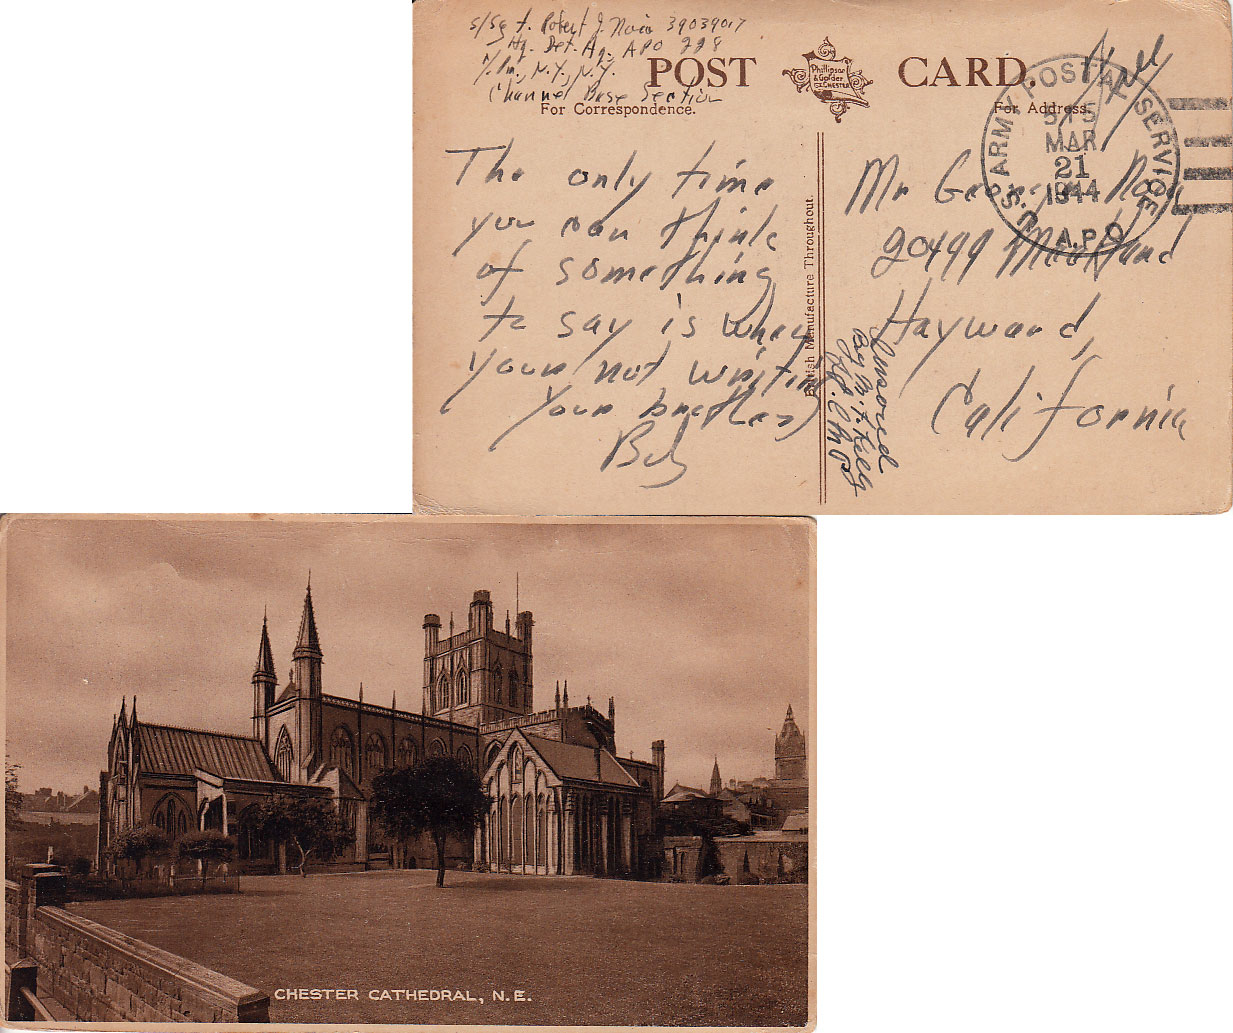 S/Sgt. Robert J. 39039017
Hq. Det. Hq. APO 228
℅ Pm, N.Y., N.Y.
Channel Base Section
POST CARD.
Phillipson
& Golder
CHESTER
For Correspondence.
For Address.
Free
U.S. ARMY POSTAL SERVICE
515
MAR
21
1944
A.P.O.
The only time
you can think
of something
to say is when
your not writing
Your brother
Bob
British Manufacture Throughout.
Mr George
20499
Hayward,
California
Censored
By M. F.
CHESTER CATHEDRAL, N.E.